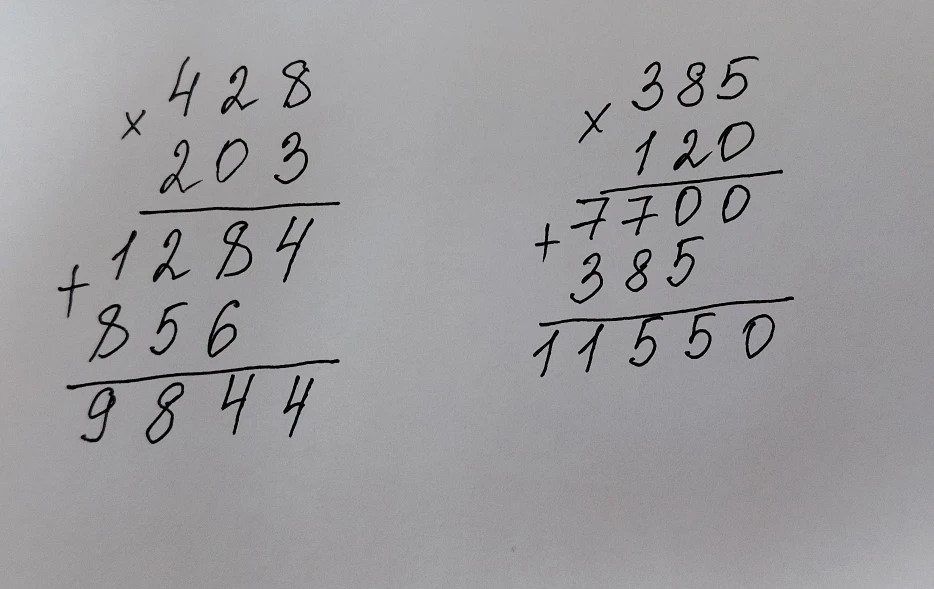 × 428
203
+ 1284
856
9844
× 385
120
+ 7700
385
11550